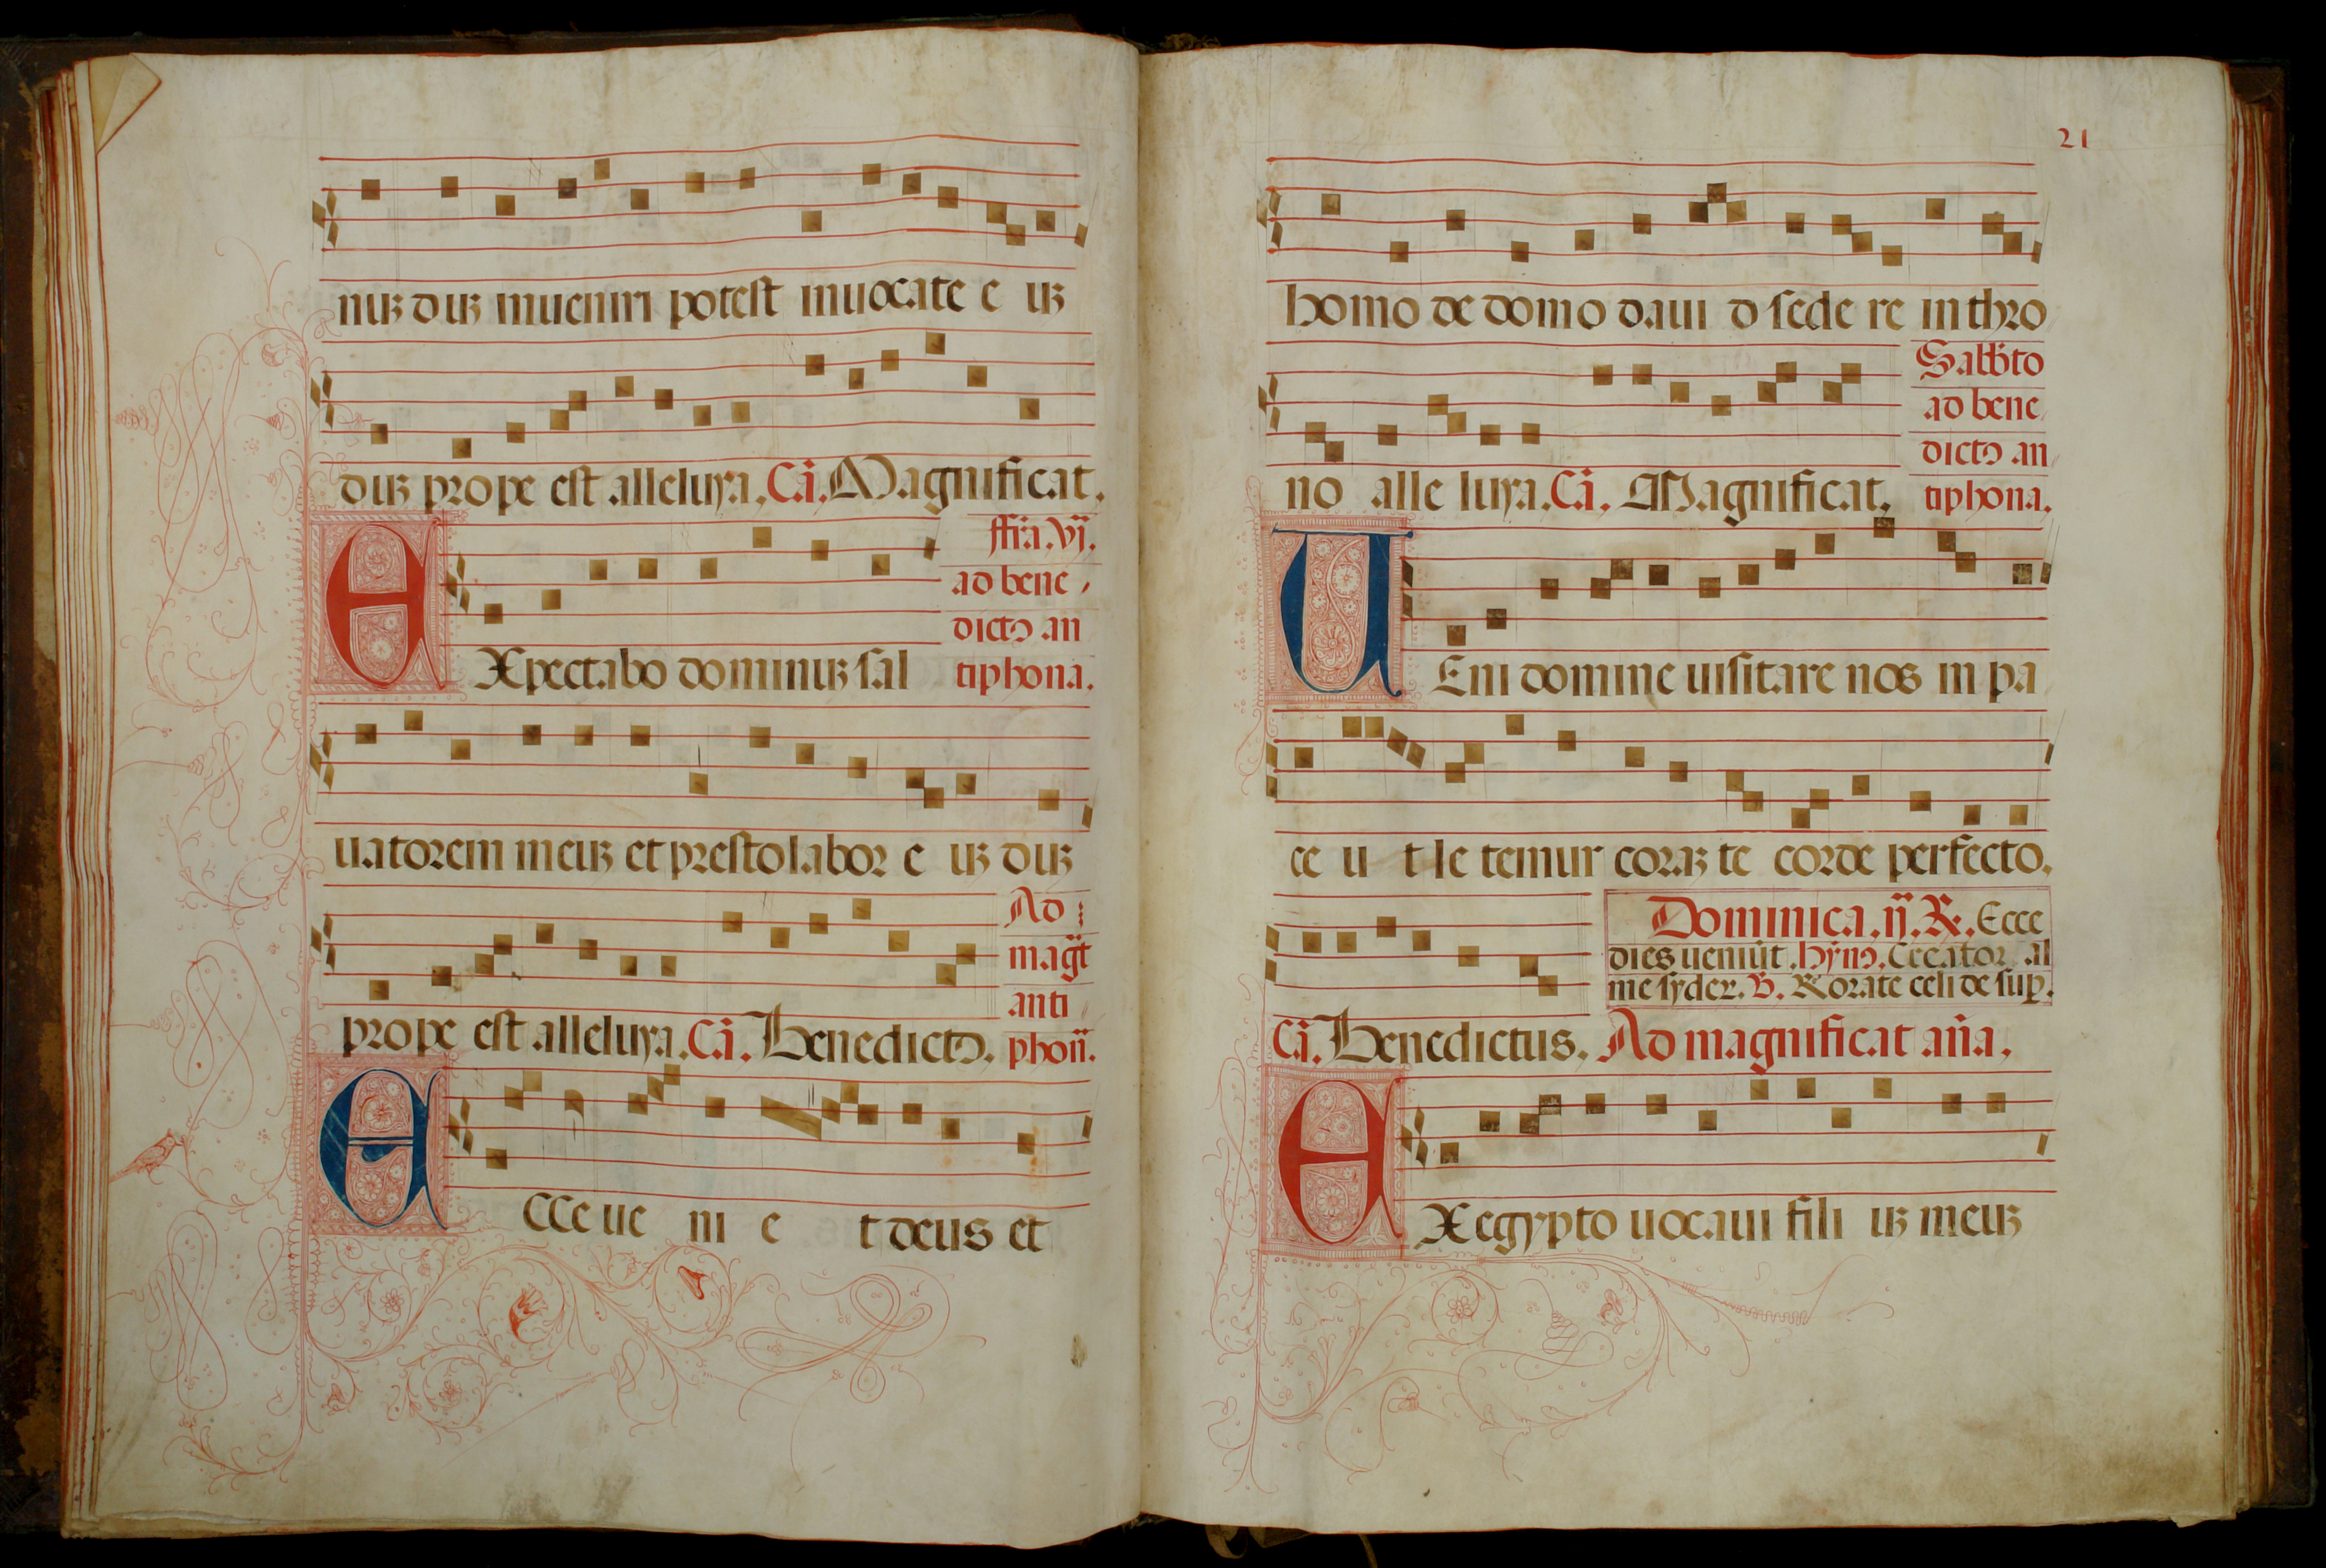 nuꝫ duꝫ inueniri potest inuocate e uꝫ
duꝫ prope est alleluya. Cā. Magnificat.
ffīa. vj.
ad bene
dictꝰ an
EXpectabo dominuꝫ sal tiphona.
uatorem meuꝫ et prestolabor e uꝫ duꝫ
Ad
magt̄
anti
prope est alleluya. Cā. Benedictꝰ. phon̄.
ECCe ue ni e t deus et
21
homo de domo daui d sede re in thro
Sabb̄to
ad bene
dictꝰ an
no alle luya. Cā. Magnificat. tiphona.
UEni domine uisitare nos in pa
ce u t le temur coraꝫ te corde perfecto.
Dominica. ij. ℞. Ecce
dies ueniūt. hȳnꝰ. Creator al
me syder. ℣. Rorate celi de sup̄.
Cā. Benedictus. Ad magnificat an̄a.
EX egypto uocaui fili uꝫ meuꝫ